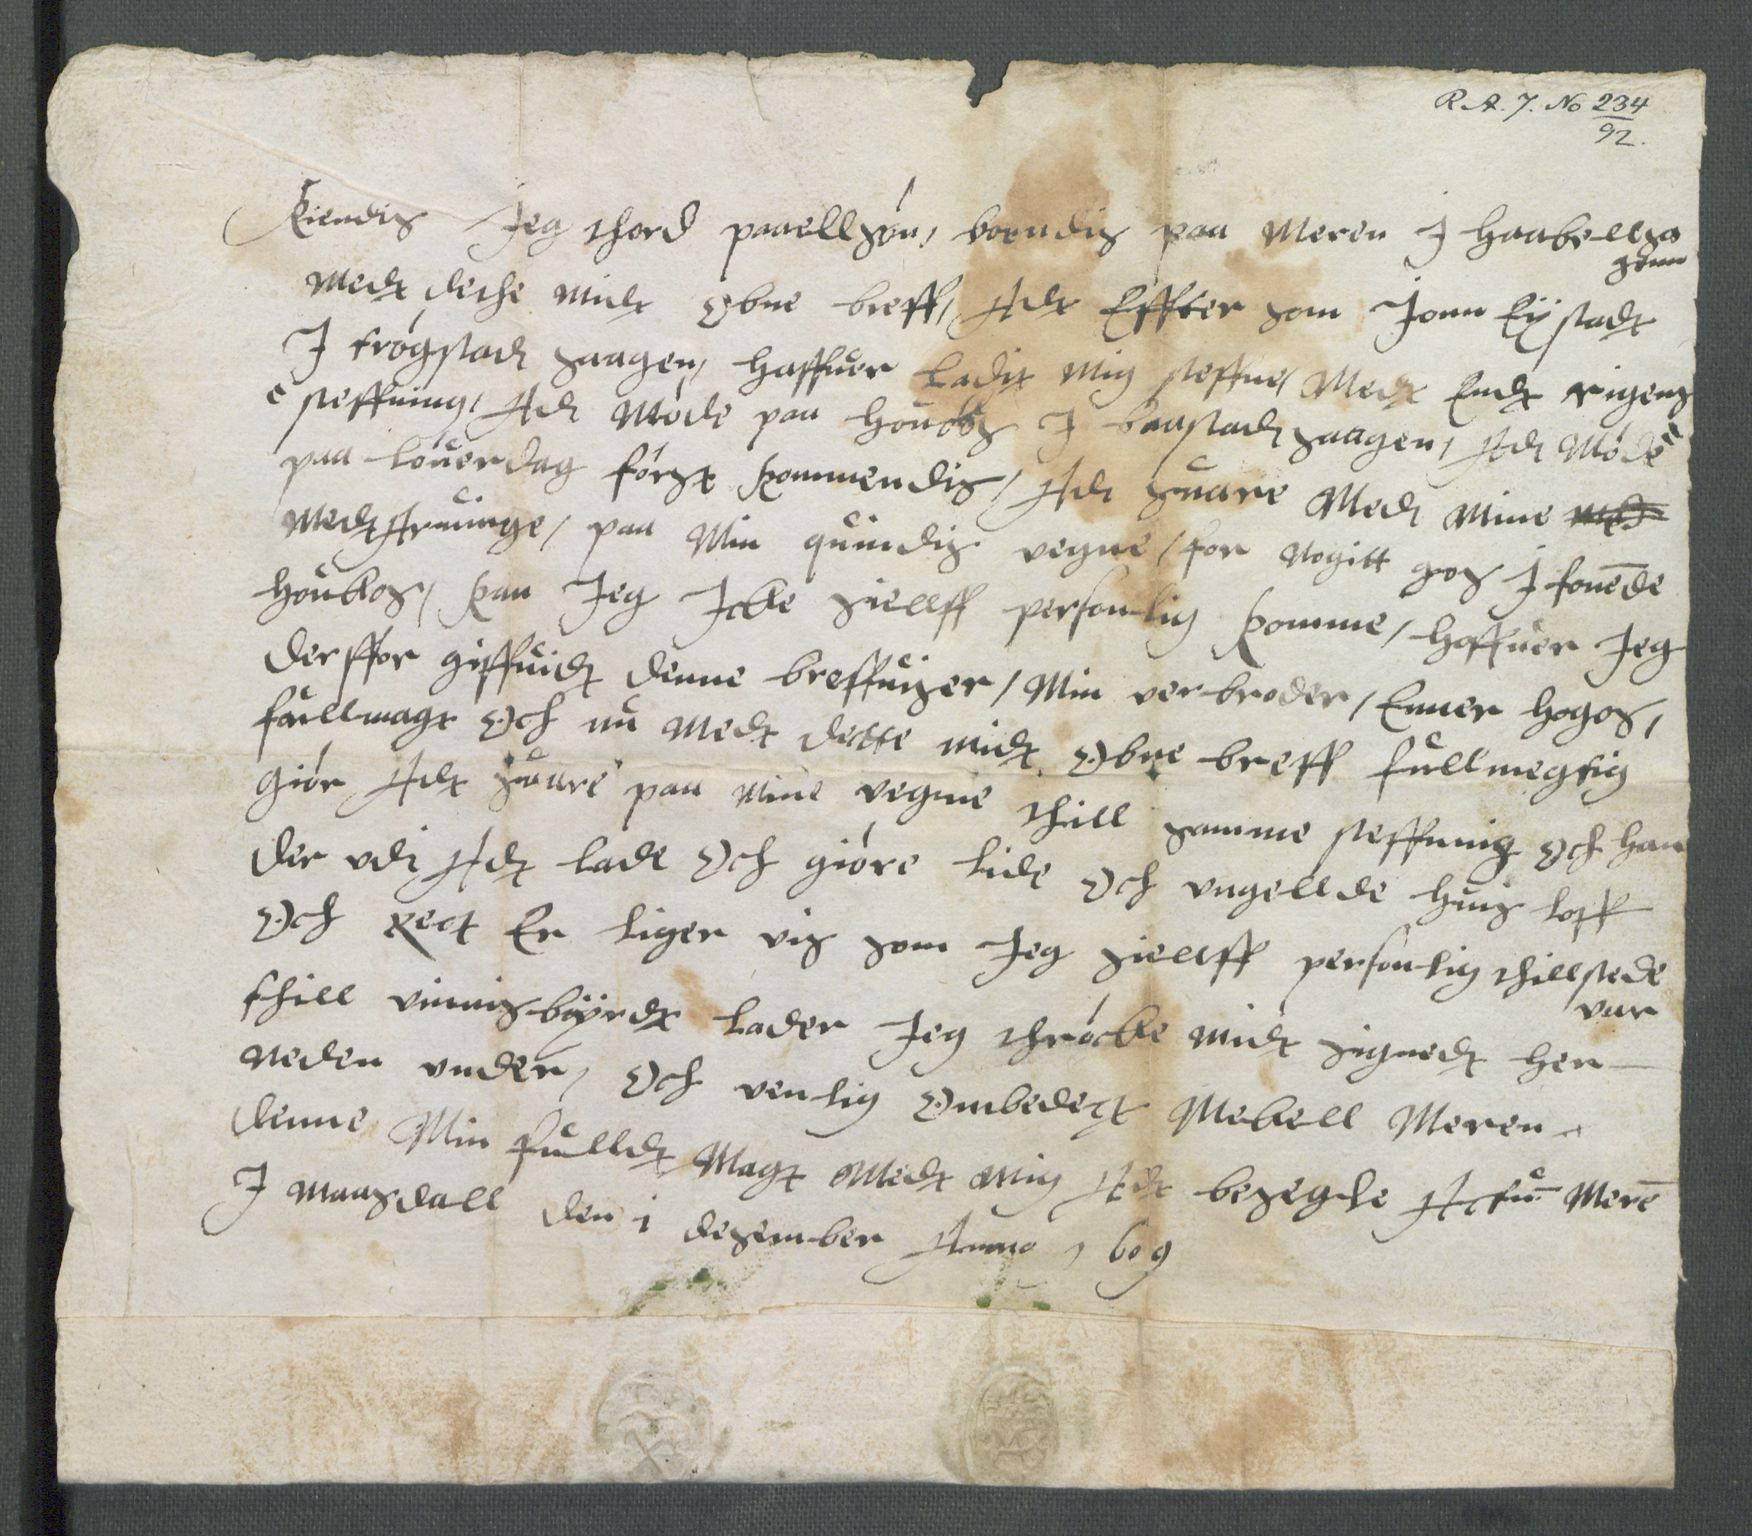 R A. 7. No 234
92.
Kiendis Jeg thord paaellsøn, boendis paa Meren J haabellsøg
sonn
Medt dethe midt Obne breff, Adt Effter som Jonn Eÿstadt
J frøgstad saagen, haffuer ladit Mig steffne, Medt Endt rigens
steffning, Ad Møde paa houbøs J baastad saagen, Ad Møde
paa løuerdag først kommendis, Ad suare Med Mine
Medt Aruinge, paa Min quindis vegne, for Nogitt gos J fornede
houbos, kan Jeg Icke siellff personlig komme, haffuer Jeg
derffor giffuidt denne breffuiser, Min verbroder, Enner hogos,
fullmagt Och nu Medt dette midt Obne breff fullmegtig
giør Adt suare paa Mine vegne thill samme steffning Och han
der udi Adt lade Och giøre lide Och vngellde huis loff
Och rect Er liger vis som Jeg siellff personlig thillstede
var
thill vinnisbÿrdt lader Jeg thrøcke midt signedt her
neden vnder, Och venlig Ombedett Mekell Meren
denne Min fulldt Magt Medt Mig Adt besegle Actum Meren
J Maasdall den 1 desember Anno 1609